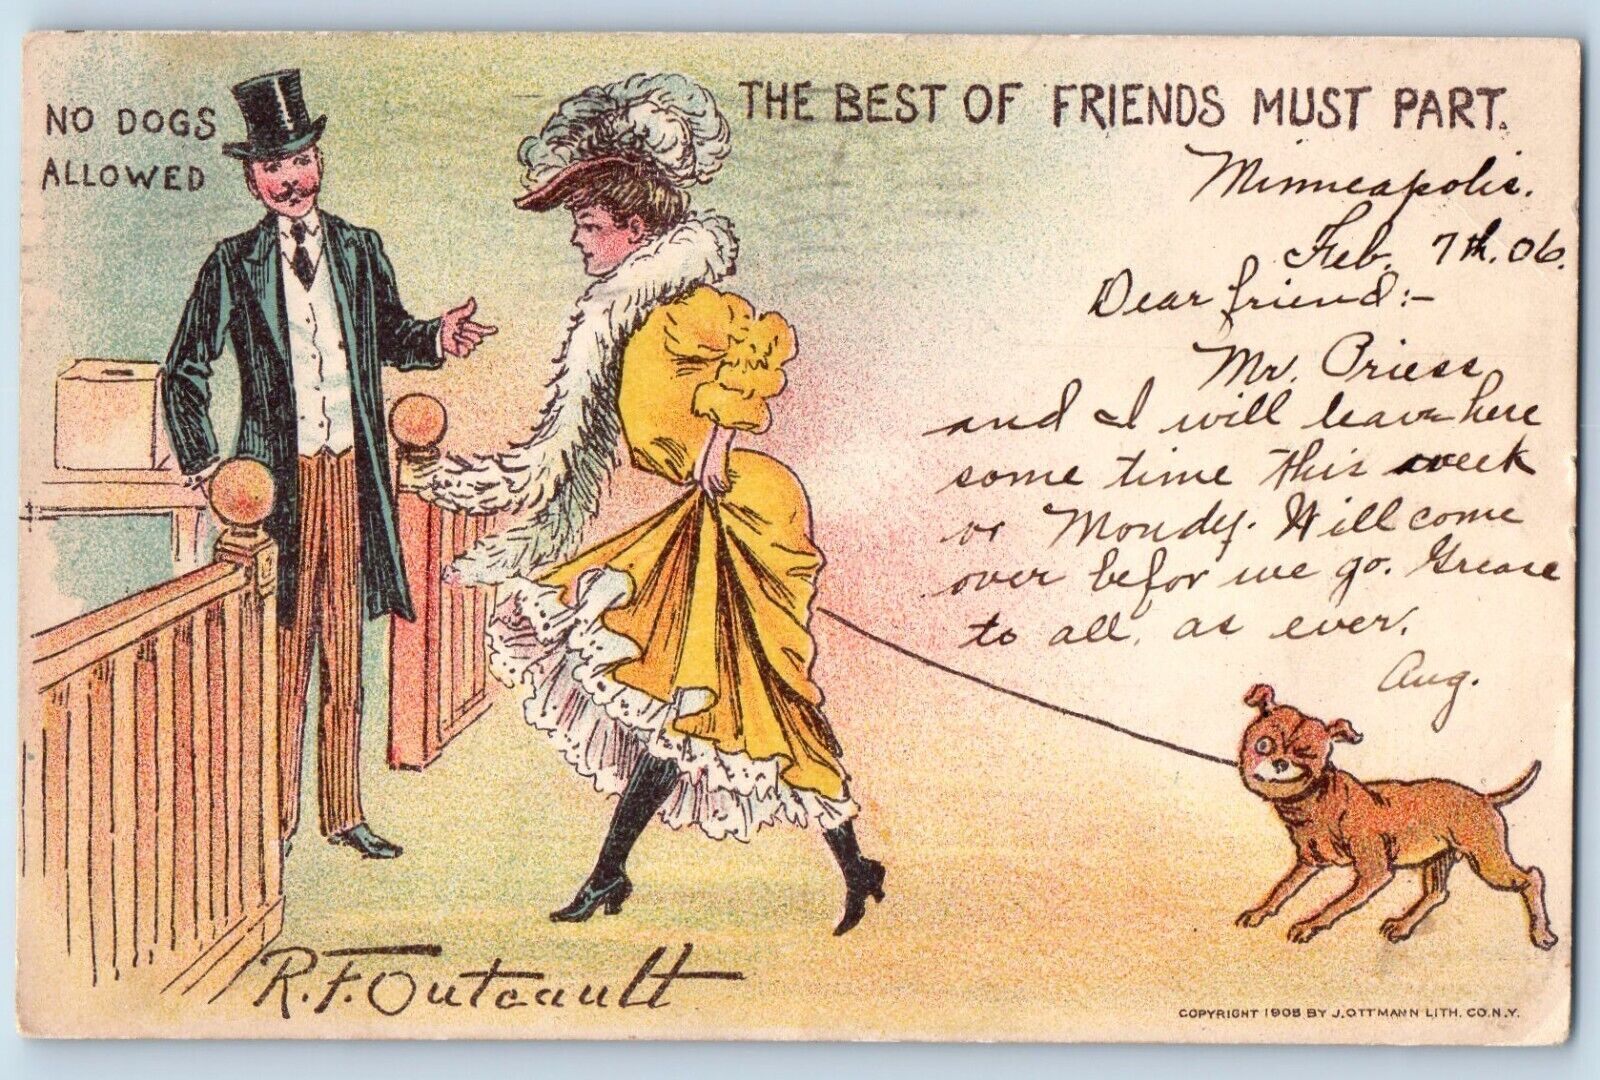 NO DOGS
ALLOWED
THE BEST OF FRIENDS MUST PART.
Minneapolis.
Feb. 7th. 06.
Dear friend:-
Mr. Priess
and I will leave here
some time this week
or Mondy. Will come
over befor we go. Grease
to all, as ever.
Aug.
R.F. Outcault
COPYRIGHT 1905 BY J. OTTMANN LITH. CO. N.Y.